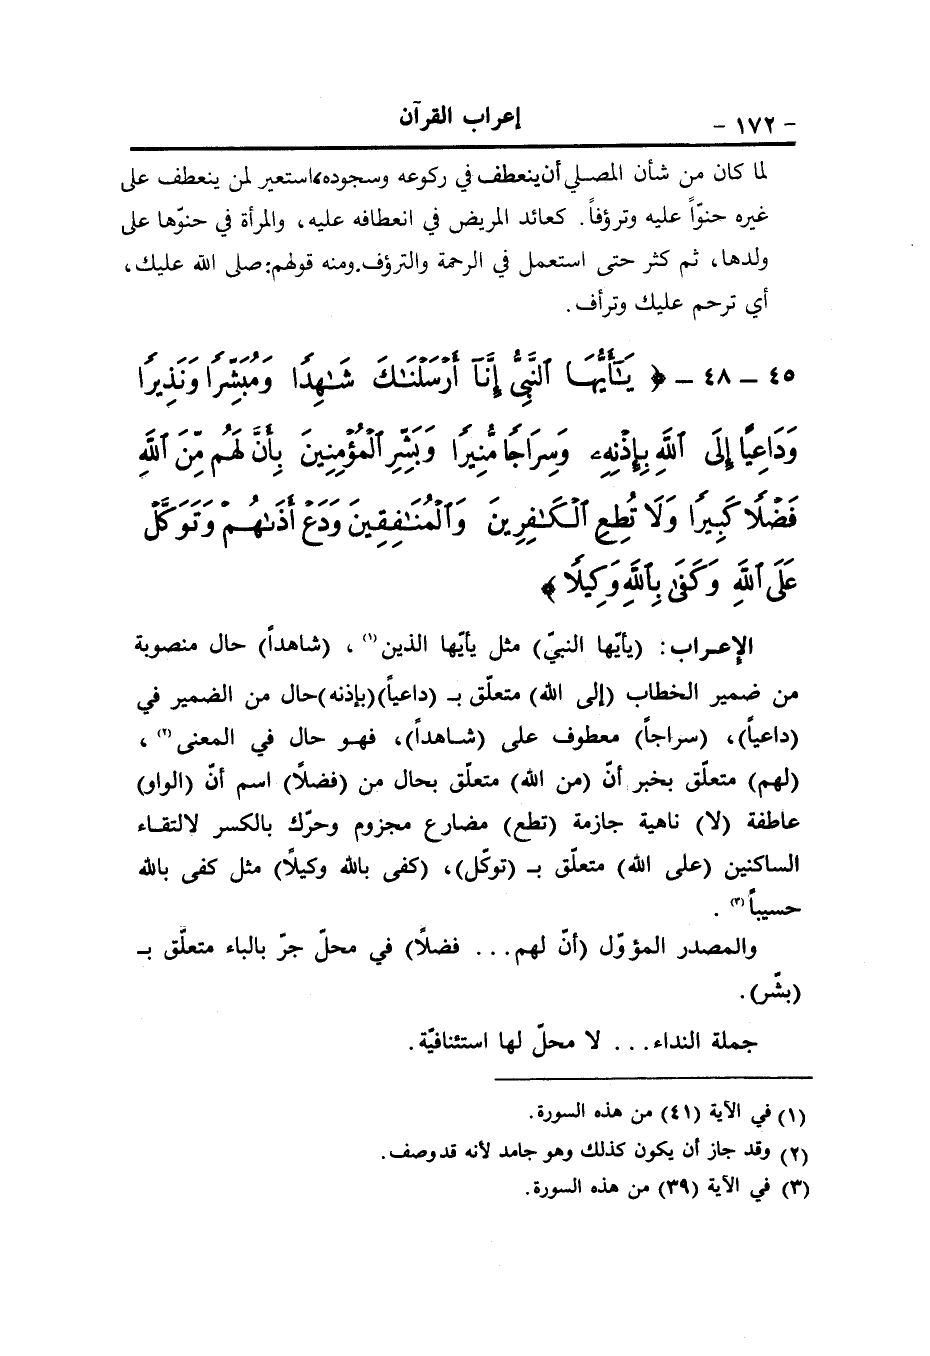 - ١٧٢ - إعراب القرآن
لما كان من شأن المصلي أن ينعطف في ركوعه وسجوده، استعير لمن ينعطف على
غيره حنوّاً عليه وترؤفاً. كعائد المريض في انعطافه عليه، والمرأة في حنوّها على
ولدها، ثم كثر حتى استعمل في الرحمة والترؤف. ومنه قولهم: صلى الله عليك،
أي ترحم عليك وترأف.
٤٥ - ٤٨ - ﴿ يَـٰٓأَيُّهَا ٱلنَّبِىُّ إِنَّآ أَرْسَلْنَـٰكَ شَـٰهِدًا وَمُبَشِّرًا وَنَذِيرًا
وَدَاعِيًا إِلَى ٱللَّهِ بِإِذْنِهِۦ وَسِرَاجًا مُّنِيرًا وَبَشِّرِ ٱلْمُؤْمِنِينَ بِأَنَّ لَهُم مِّنَ ٱللَّهِ
فَضْلًا كَبِيرًا وَلَا تُطِعِ ٱلْكَـٰفِرِينَ وَٱلْمُنَـٰفِقِينَ وَدَعْ أَذَىٰهُمْ وَتَوَكَّلْ
عَلَى ٱللَّهِ وَكَفَىٰ بِٱللَّهِ وَكِيلًا ﴾
الإعراب: (يأيّها النبيّ) مثل يأيّها الذين(١)، (شاهداً) حال منصوبة
من ضمير الخطاب (إلى الله) متعلّق بـ (داعياً) (بإذنه) حال من الضمير في
(داعياً)، (سراجاً) معطوف على (شاهداً)، فهو حال في المعنى(٢)،
(لهم) متعلّق بخبر أنّ (من الله) متعلّق بحال من (فضلًا) اسم أنّ (الواو)
عاطفة (لا) ناهية جازمة (تطع) مضارع مجزوم وحرّك بالكسر لالتقاء
الساكنين (على الله) متعلّق بـ (توكّل)، (كفى بالله وكيلًا) مثل كفى بالله
حسيباً(٣).
والمصدر المؤوّل (أنّ لهم... فضلًا) في محلّ جرّ بالباء متعلّق بـ
(بشّر).
جملة النداء... لا محلّ لها استئنافيّة.
(١) في الآية (٤١) من هذه السورة.
(٢) وقد جاز أن يكون كذلك وهو جامد لأنه قد وصف.
(٣) في الآية (٣٩) من هذه السورة.